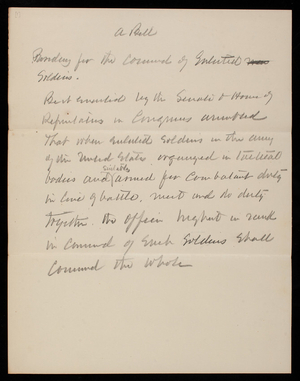 A Bill
Providing for the Command of Enlisted
Soldiers.
Be it enacted by the Senate & House of
Representatives in Congress assembled
That when Enlisted Soldiers in the army
of the United States organized in tactical
bodies and suitably armed for Combatant duty
in line of battle, meet and do duty
together. the officer highest in rank
in Command of Such Soldiers Shall
Command the whole